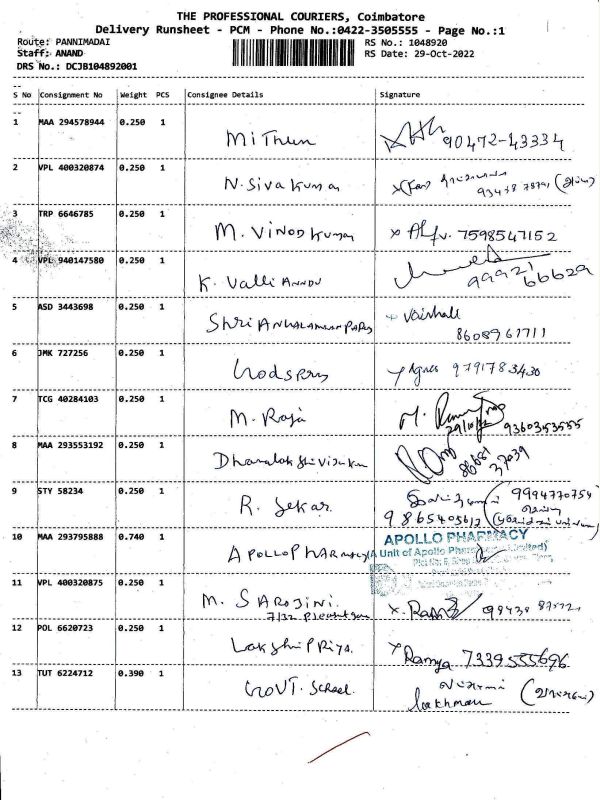 THE PROFESSIONAL COURIERS, Coimbatore
Delivery Runsheet - PCM - Phone No.:0422-3505555 - Page No.:1
Route: PANNIMADAI
RS No.: 1048920
Staff: ANAND
RS Date: 29-Oct-2022
DRS No.: DCJB104892001
S No Consignment No Weight PCS Consignee Details Signature
1 MAA 294578944 0.250 1 Mithun 90472-43334
2 VPL 400320874 0.250 1 N. Siva Kumar
3 TRP 6646785 0.250 1 M. Vinod Kumar 7598547152
4 VPL 940147580 0.250 1 K. Valli Annou 99921 66629
5 ASD 3443698 0.250 1 Shri Vaishali
8608961711
6 JMK 727256 0.250 1 Godspery Agnes 9791783430
7 TCG 40284103 0.250 1 M. Raja 29/10/22 9360353555
8 MAA 293553192 0.250 1 86681 37039
9 STY 58234 0.250 1 R. Sekar 9994770754
9865405612
10 MAA 293795888 0.740 1 APOLLO PHARMACY
APOLLO PHARMACY
(A Unit of Apollo
11 VPL 400320875 0.250 1 M. SAROJINI
7/32
12 POL 6620723 0.250 1 Lakshi Priya. Ramya 7339555696
13 TUT 6224712 0.390 1 GOVT. School lakhman